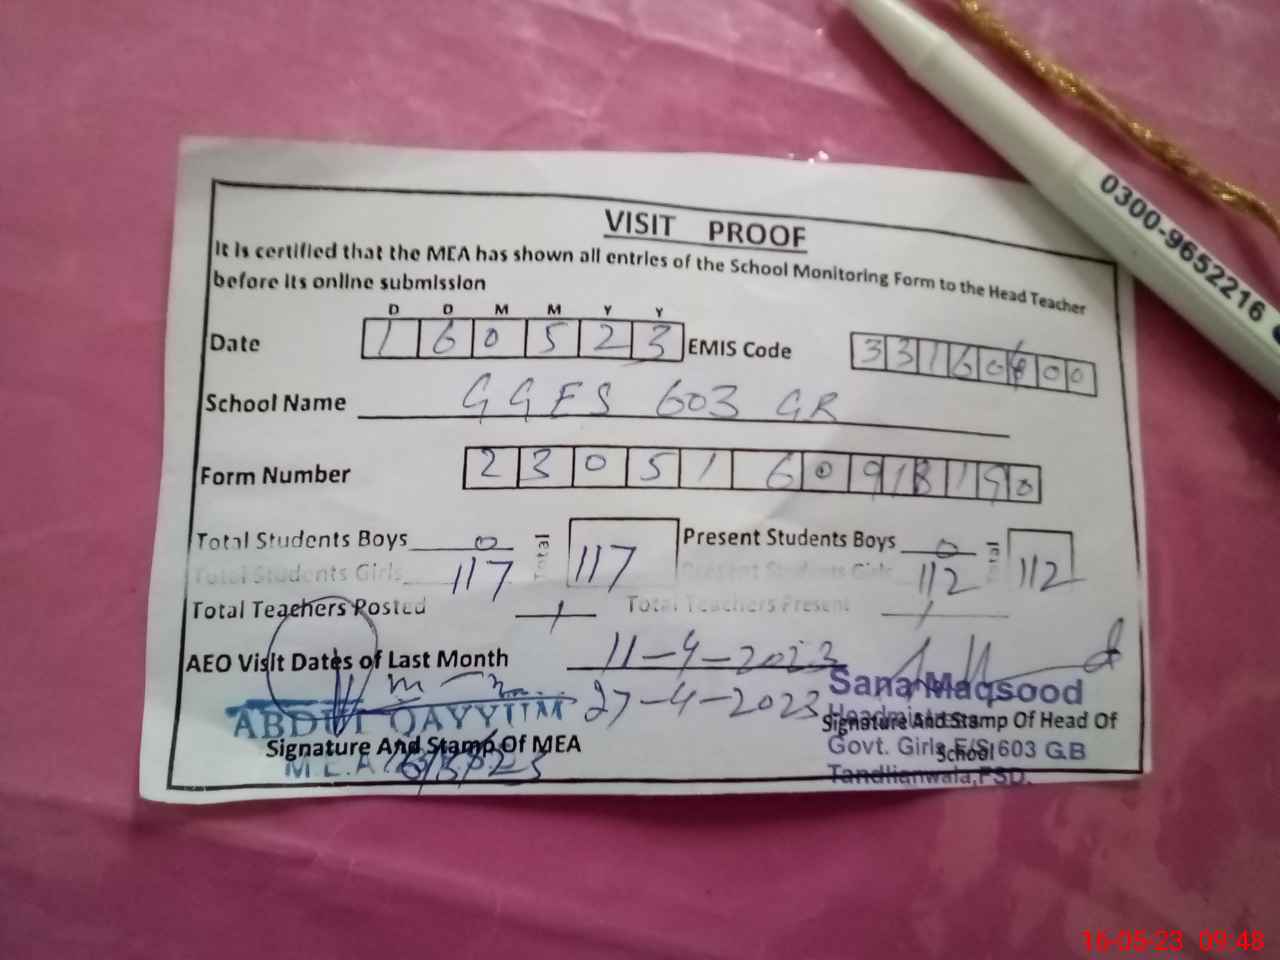 0300-9652216
VISIT PROOF
It is certified that the MEA has shown all entries of the School Monitoring Form to the Head Teacher
before its online submission
D D M M Y Y
Date 1 6 0 5 2 3 EMIS Code 3 3 1 6 0 4 0 0
School Name GGES 603 GR
Form Number 2 3 0 5 1 6 0 9 1 8 1 9 0
Total Students Boys 0 Total 117 Present Students Boys 0 Total 112
Total Students Girls 117 Present Students Girls 112
Total Teachers Posted 1 Total Teachers Present 1
AEO Visit Dates of Last Month 11-4-2023
27-4-2023
ABDUL QAYYUM
Signature And Stamp Of MEA
M.E.A
16/5/23
Sana Maqsood
Headmistress
Signature And Stamp Of Head Of
School
Govt. Girls E/S 603 GB
Tandlianwala, FSD.
16-05-23 09:48